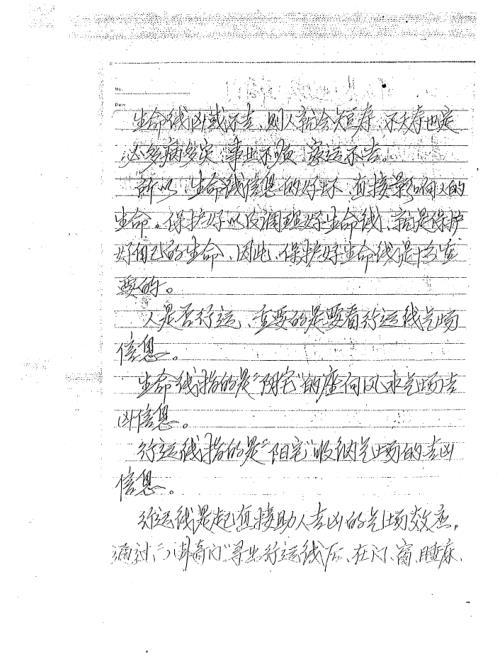 No.
Date
生命线凶或不吉、则人就会短寿、不夭寿也是
必多病多灾、事业不顺、家运不吉。
所以、生命线信息的好坏、直接影响人的
生命。保护好以及调理好生命线、就是保护
好自己的生命、因此、保护好生命线是十分重
要的。
人是否行运、重要的是要看行运线气场
信息。
生命线指的是“阴宅”的座向风水气场吉
凶信息。
行运线指的是“阳宅”收纳气场的吉凶
信息。
行运线是起直接助人吉凶的气场效应。
通过“八卦奇门”寻出行运线后、在门、窗、睡床、